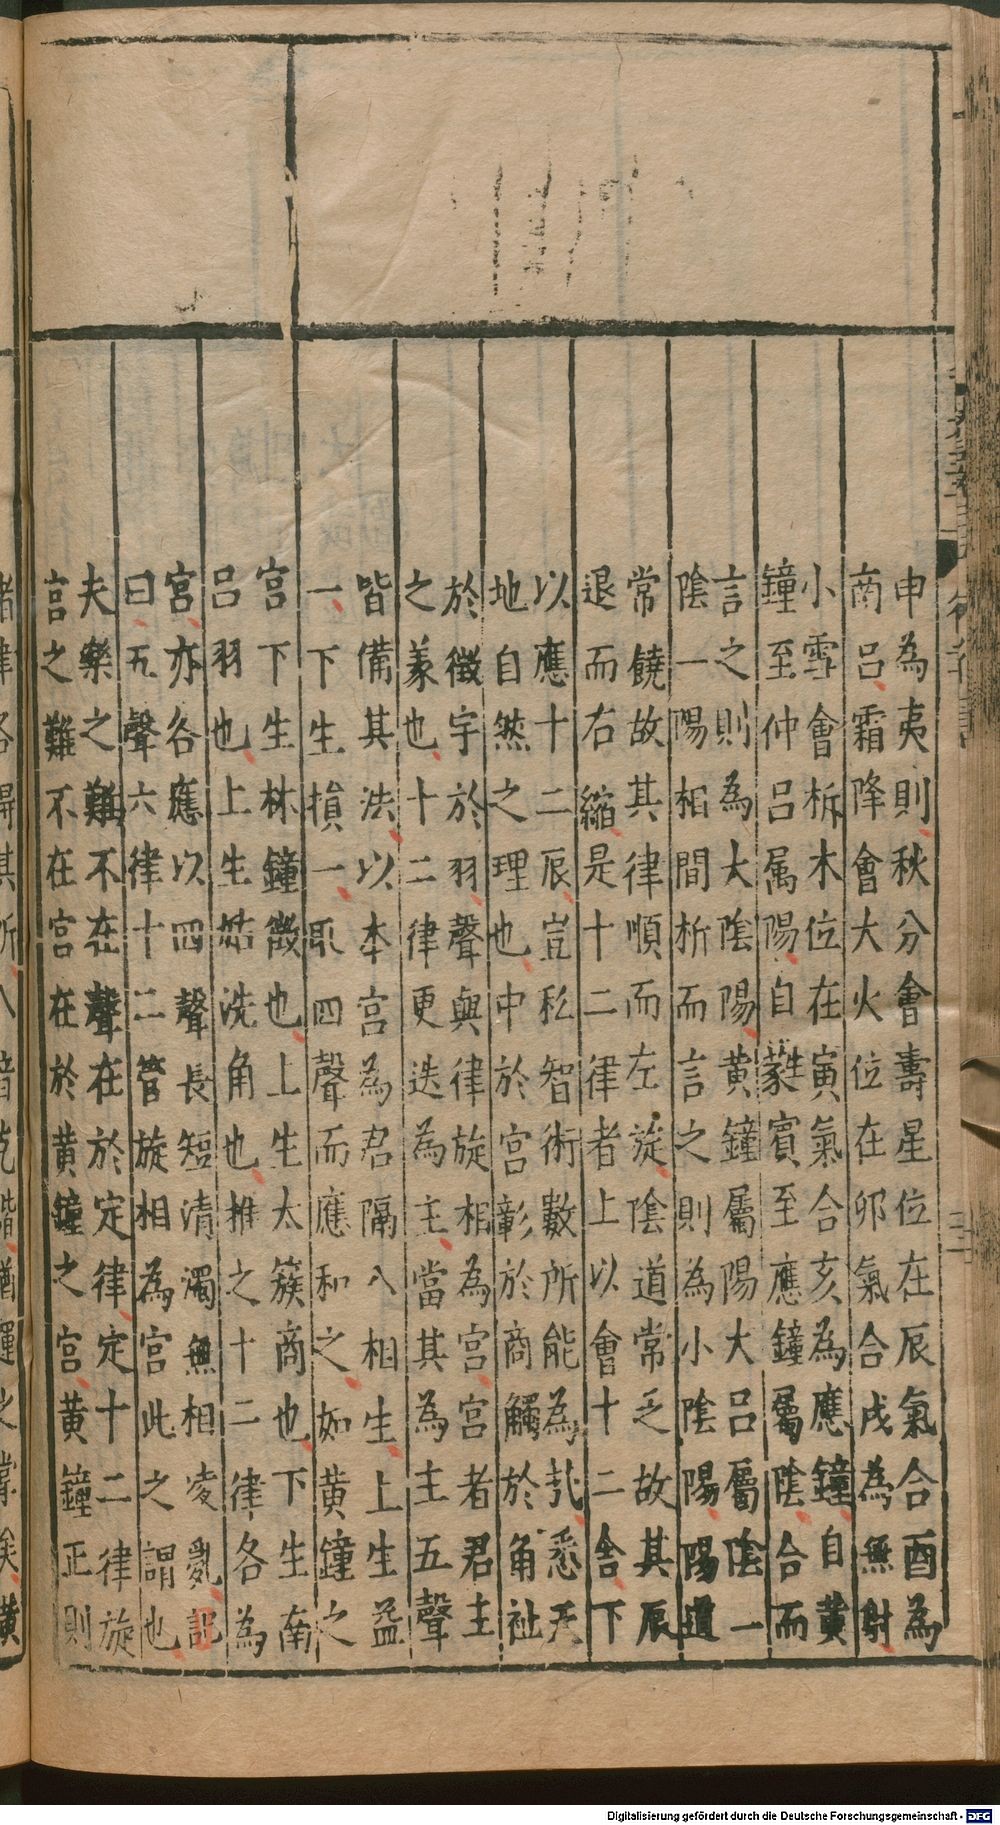 申為夷則秋分會壽星位在辰氣合酉為
南呂霜降會大火位在卯氣合戌為無射
小雪會析木位在寅氣合亥為應鐘自黃
鐘至仲呂属陽自蕤賓至應鐘屬陰合而
言之則為大陰陽黃鐘屬陽大呂屬陰一
陰一陽相間析而言之則為小陰陽陽道
常饒故其律順而左旋陰道常乏故其辰
退而右縮是十二律者上以會十二舍下
以應十二辰豈私智術數所能為㢤悉天
地自然之理也中於宮彰於商觸於角祉
於徵宇於羽聲與律旋相為宮宮者君主
之義也十二律更迭為主當其為主五聲
皆備其法以本宮為君隔八相生上生益
一下生損一取四聲而應和之如黃鐘之
宮下生林鐘徵也上生太簇商也下生南
呂羽也上生姑洗角也推之十二律各為
宮亦各應以四聲長短清濁無相凌亂記
曰五聲六律十二管旋相為宮此之謂也
夫樂之難不在聲在於定律定十二律旋
宮之難不在宮在於黃鐘之宮黃鐘正則
Digitalisierung gefördert durch die Deutsche Forschungsgemeinschaft - DFG